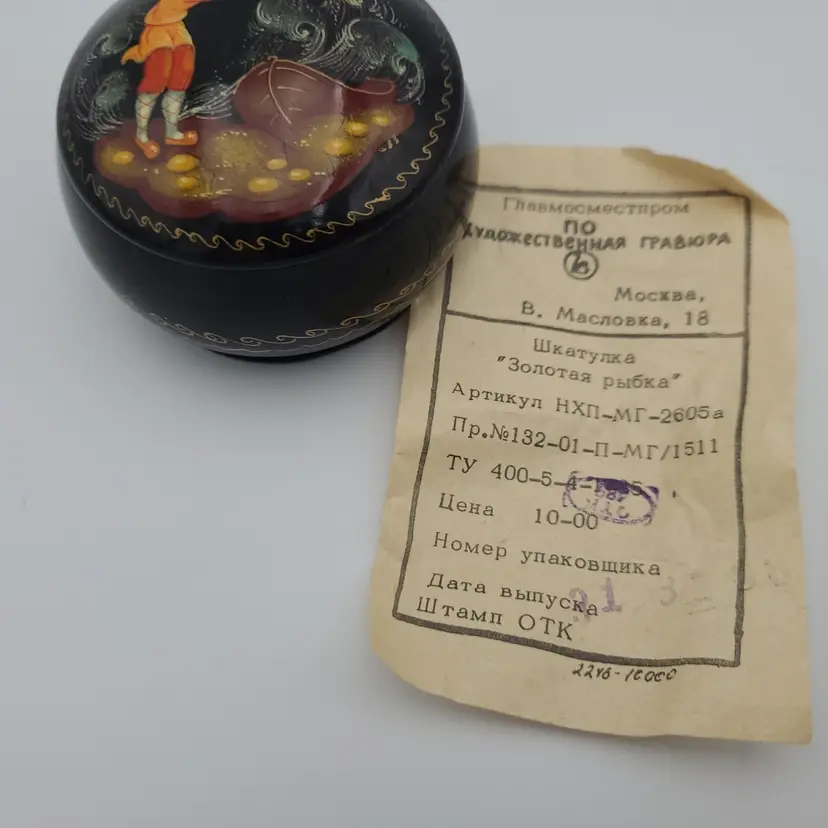 Главмосместпром
ПО
ХУДОЖЕСТВЕННАЯ ГРАВЮРА
Москва,
В. Масловка, 18
Шкатулка
"Золотая рыбка"
Артикул НХП-МГ-2605а
Пр.№132-01-П-МГ/1511
ТУ 400-5-4-
Цена 10-00
Номер упаковщика
Дата выпуска
Штамп ОТК
2246-18000